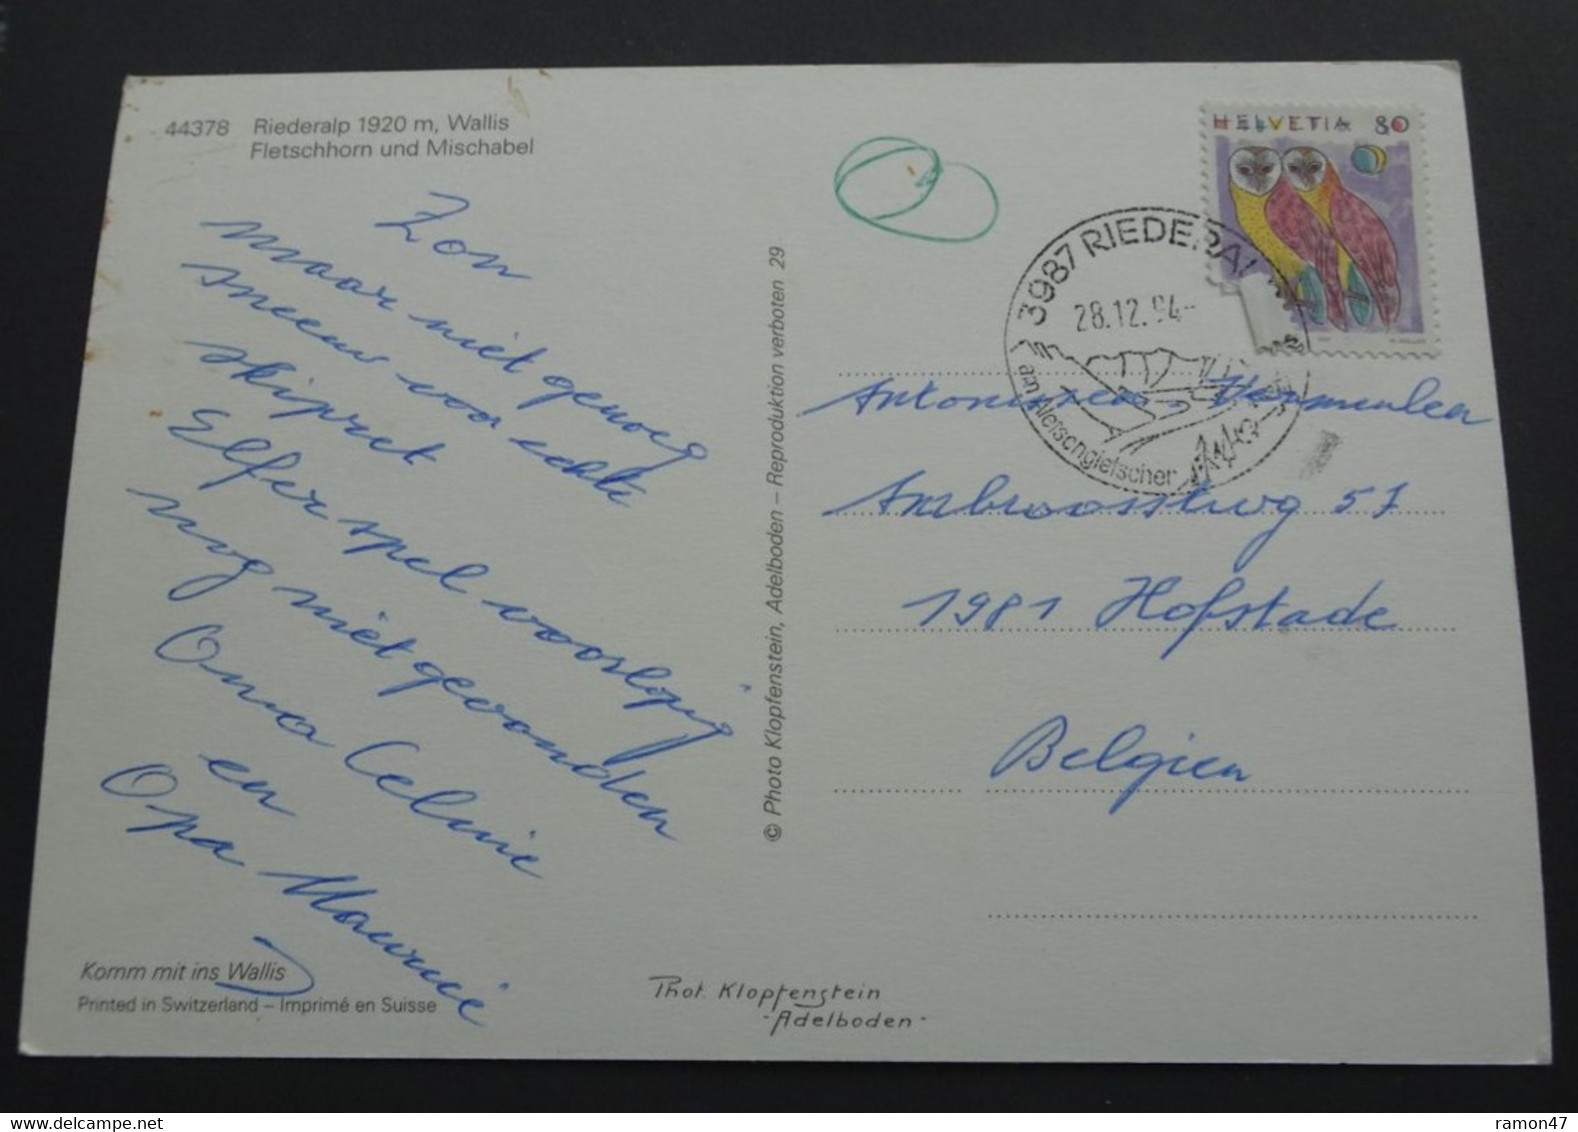 44378 Riederalp 1920 m, Wallis
Fletschhorn und Mischabel
Zon
maar niet genoeg
sneeuw voor echte
skipret
Elfer spel voorlopig
nog niet gevonden
Oma Celine
en
Opa Maurice
Komm mit ins Wallis
Printed in Switzerland – Imprimé en Suisse
© Photo Klopfenstein, Adelboden – Reproduktion verboten 29
Phot. Klopfenstein
-Adelboden-
HELVETIA 80
3987 RIEDERAL
28.12.94-
am Aletschgletscher
Vermeulen
57
1981 Hofstade
Belgien
ramon47